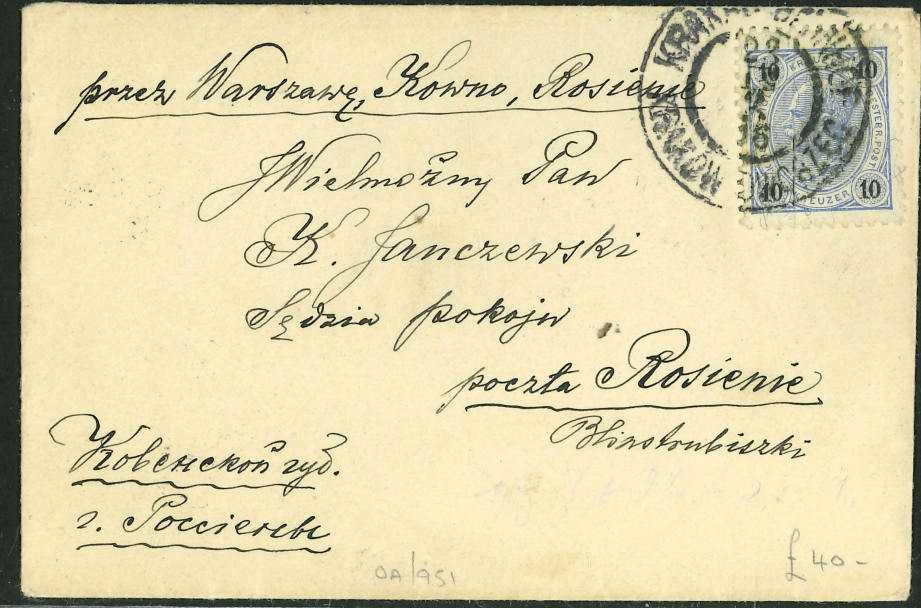 przez Warszawę, Kowno, Rosienie
JWielmożny Pan
K. Janczewski
Sędzia pokoju
poczta Rosienie
Blinstrubiszki
Ковенской губ.
г. Россіены
OA/951
£40-
KRAKAU
KRAKÓW
10 10
10 KREUZER 10